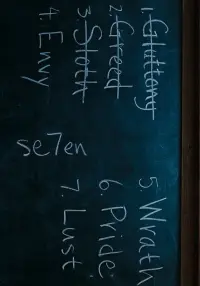 1. Gluttony
2. Greed
3. Sloth
4. Envy
se7en
5 Wrath
6. Pride
7. Lust